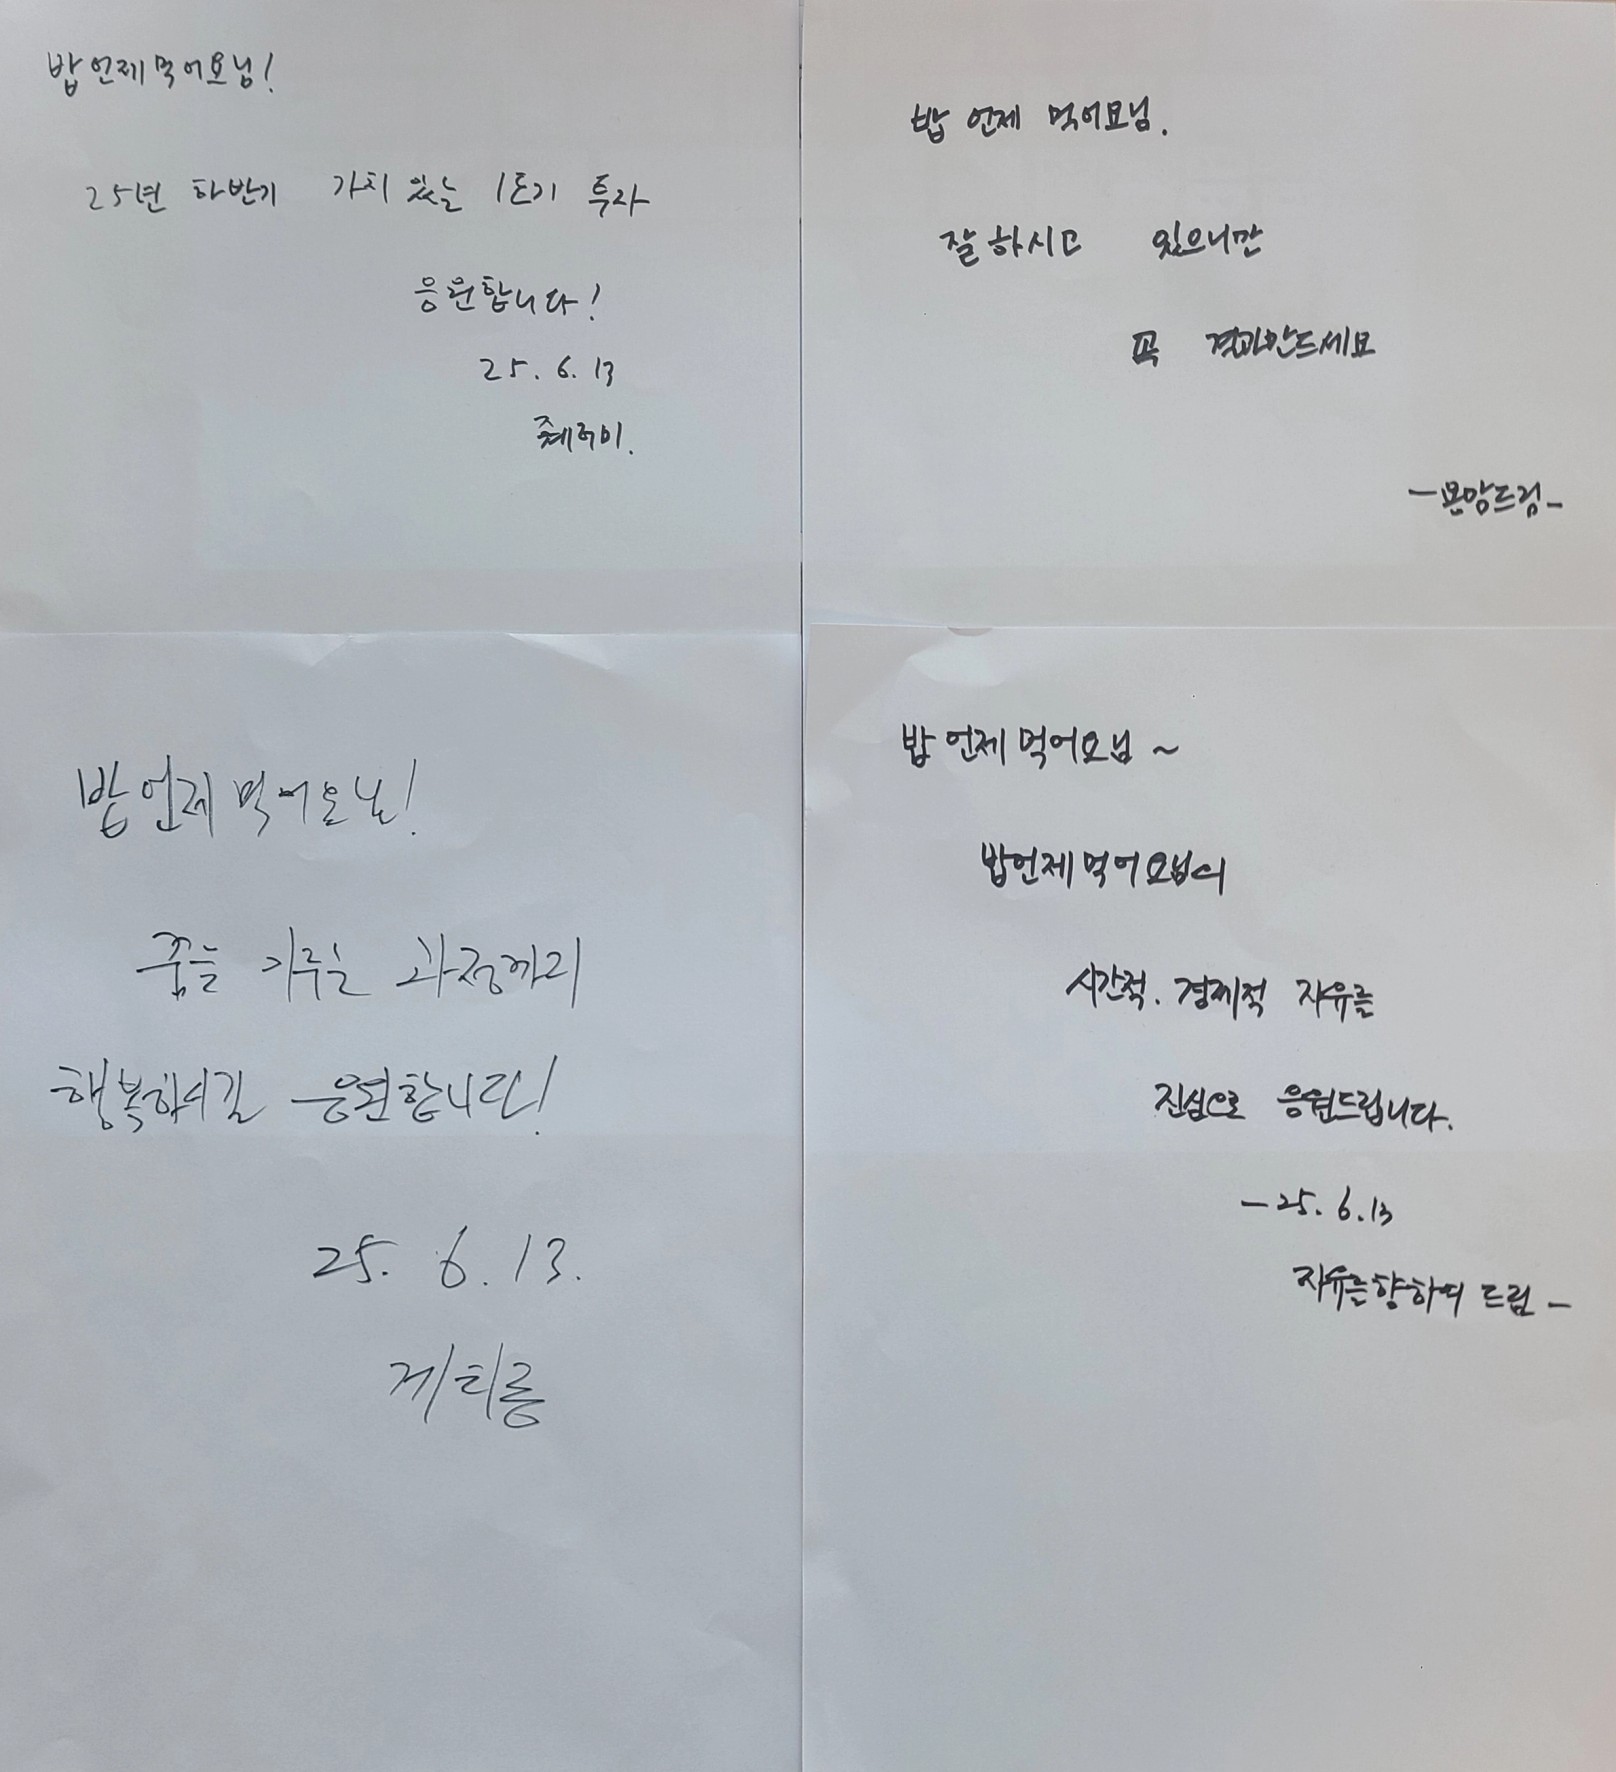 밥언제먹어요님!
25년 하반기 가치 있는 1호기 투자
응원합니다!
25. 6. 13
밥 언제 먹어요님.
잘하시고 있으니깐
꼭 결과만드세요
-몬앙드림-
밥언제먹어요님!
꿈을 이루는 과정까지
행복하시길 응원합니다!
25. 6. 13.
밥언제먹어요님~
밥언제먹어요님의
시간적. 경제적 자유를
진심으로 응원드립니다.
-25. 6. 13
자유를향하여 드림-